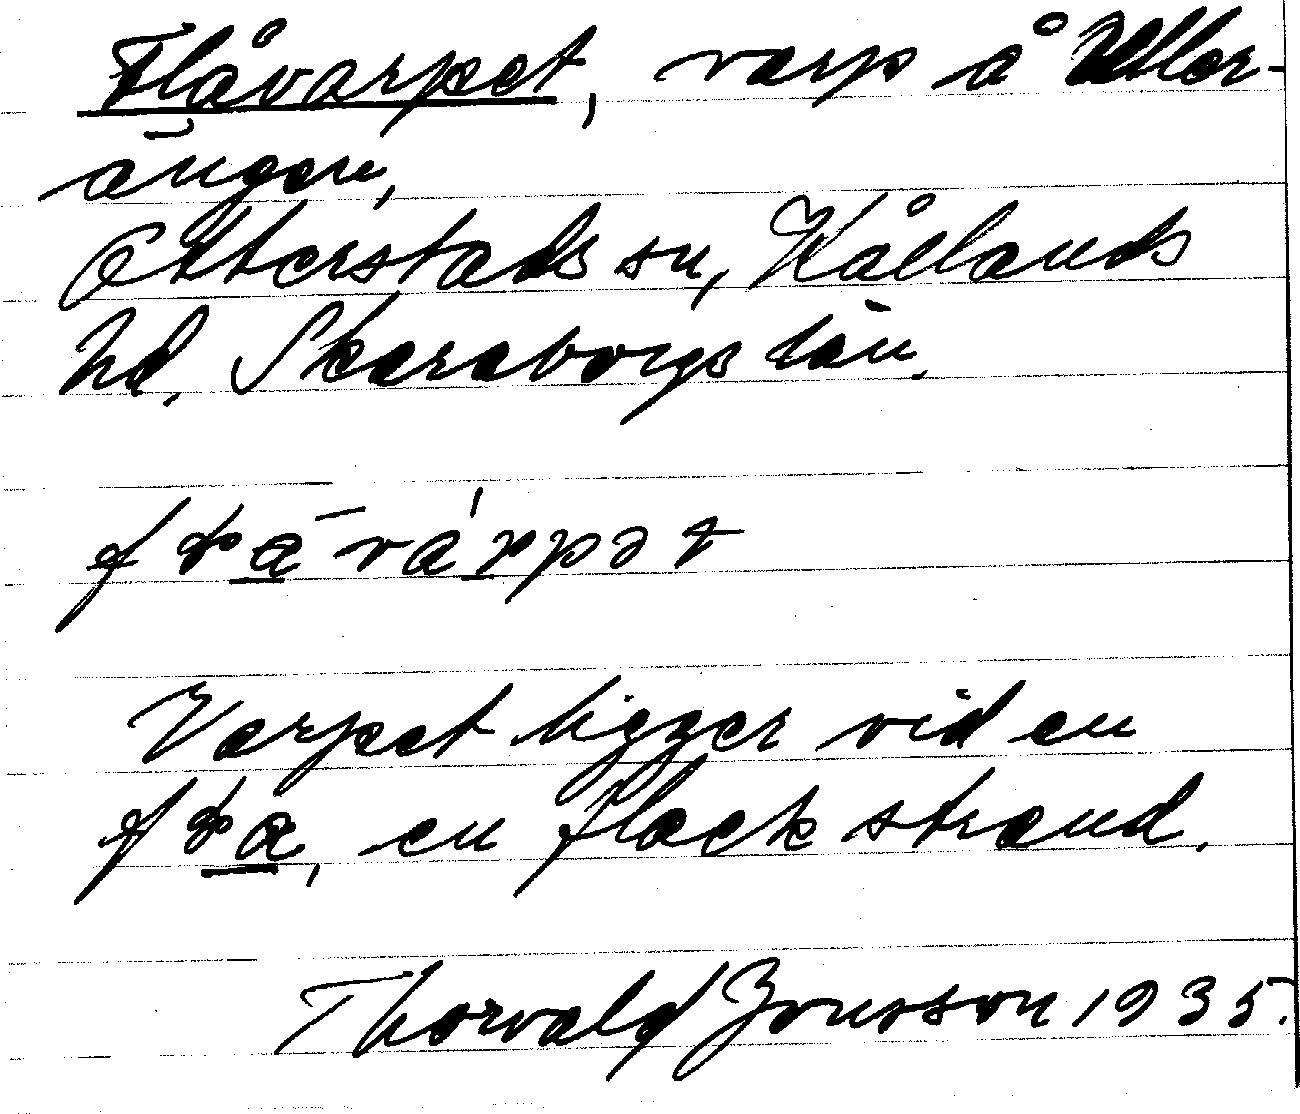 Flåvarpet, varp å Uller-
ängen,
Otterstads sn, Kållands
hd, Skaraborgs län.
Varpet ligger vid en
en flack strand.
Thorvald Jonsson 1935.